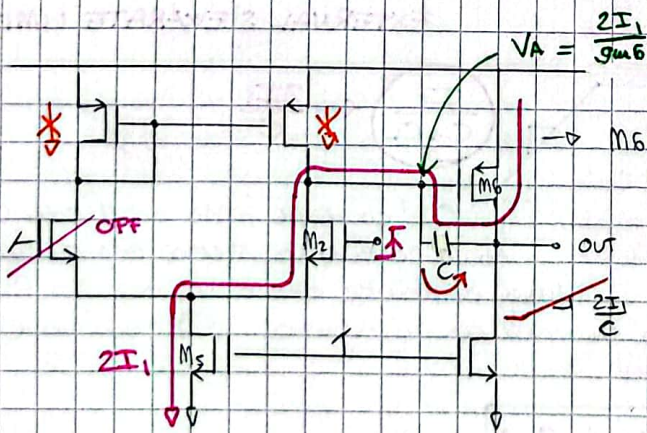 VA = 2I1/gm6
M6
M6
OFF
M2
C
OUT
2I1/C
2I1
M5